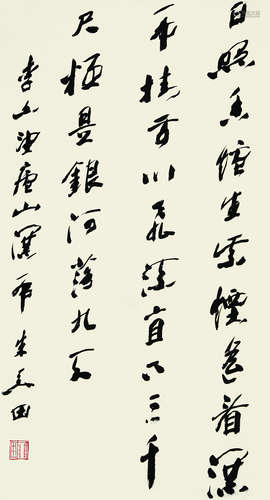 日照香爐生紫煙遙看瀑
布挂前川飛流直下三千
尺疑是銀河落九天
李白望廬山瀑布 朱关田